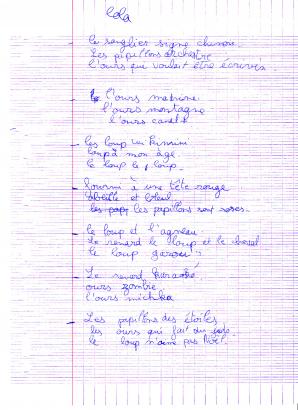 Lola
- Le sanglier signe chinois.
Les papillons orchestre
l'ours qui voulait être écrivain
- l'ours marine.
l'ours montagne
l'ours
- les loup
loup à mon âge.
le loup le loup.
- Fourmi à une tête rouge
abeille et
les papillons sont roses.
- le loup et l'agneau.
Le renard le loup et le cheval
le loup garou
- Le renard karaoké.
ours zombie.
l'ours michka
- Les papillons des étoiles
les ours qui fait du
le loup n'aime pas Noël.